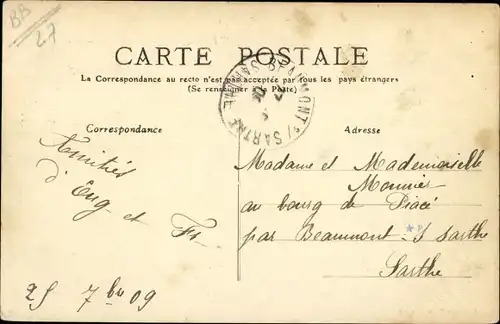 BB
27
CARTE POSTALE
La Correspondance au recto n'est pas acceptée par tous les pays étrangers
(Se renseigner à la Poste)
BEAUMONT S/ SARTHE
Correspondance
Amitiés
d'Eug et Fr.
25 7bre 09
Adresse
Madame et Mademoiselle
Monnier
au bourg de Piacé
par Beaumont-s sarthe
Sarthe